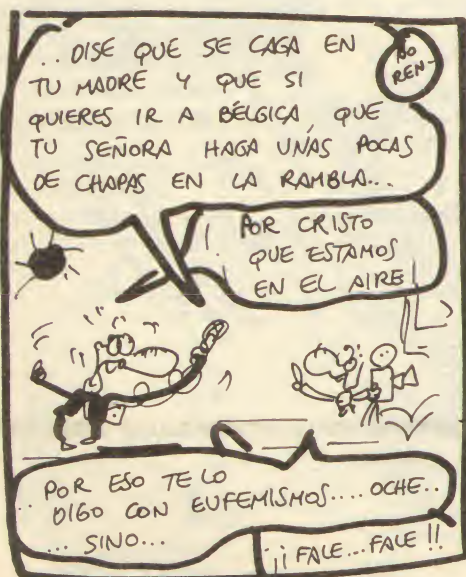 .. DISE QUE SE CAGA EN
TU MADRE Y QUE SI
QUIERES IR A BÉLGICA, QUE
TU SEÑORA HAGA UNAS POCAS
DE CHAPAS EN LA RAMBLA...
NO
REN-
POR CRISTO
QUE ESTAMOS
EN EL AIRE
POR ESO TE LO
DIGO CON EUFEMISMOS.... OCHE..
... SINO...
¡¡ FALE... FALE !!